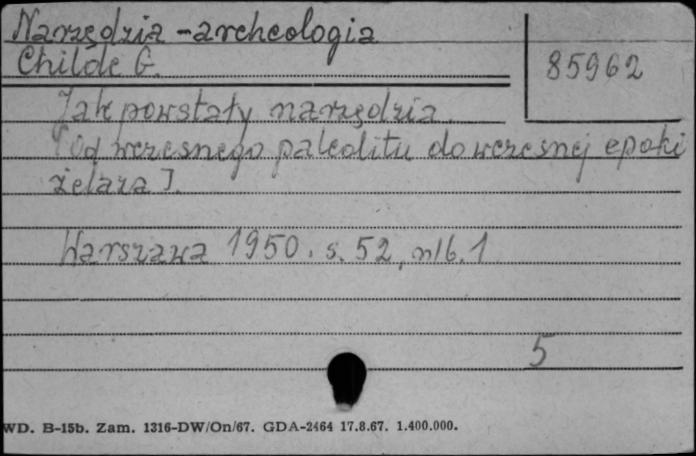 Narzędzia - archeologia
Childe G.
85962
Jak powstały narzędzia.
[Od wczesnego paleolitu do wczesnej epoki
żelaza].
Warszawa 1950. s. 52, nlb. 1
5
WD. B-15b. Zam. 1316-DW/On/67. GDA-2464 17.8.67. 1.400.000.